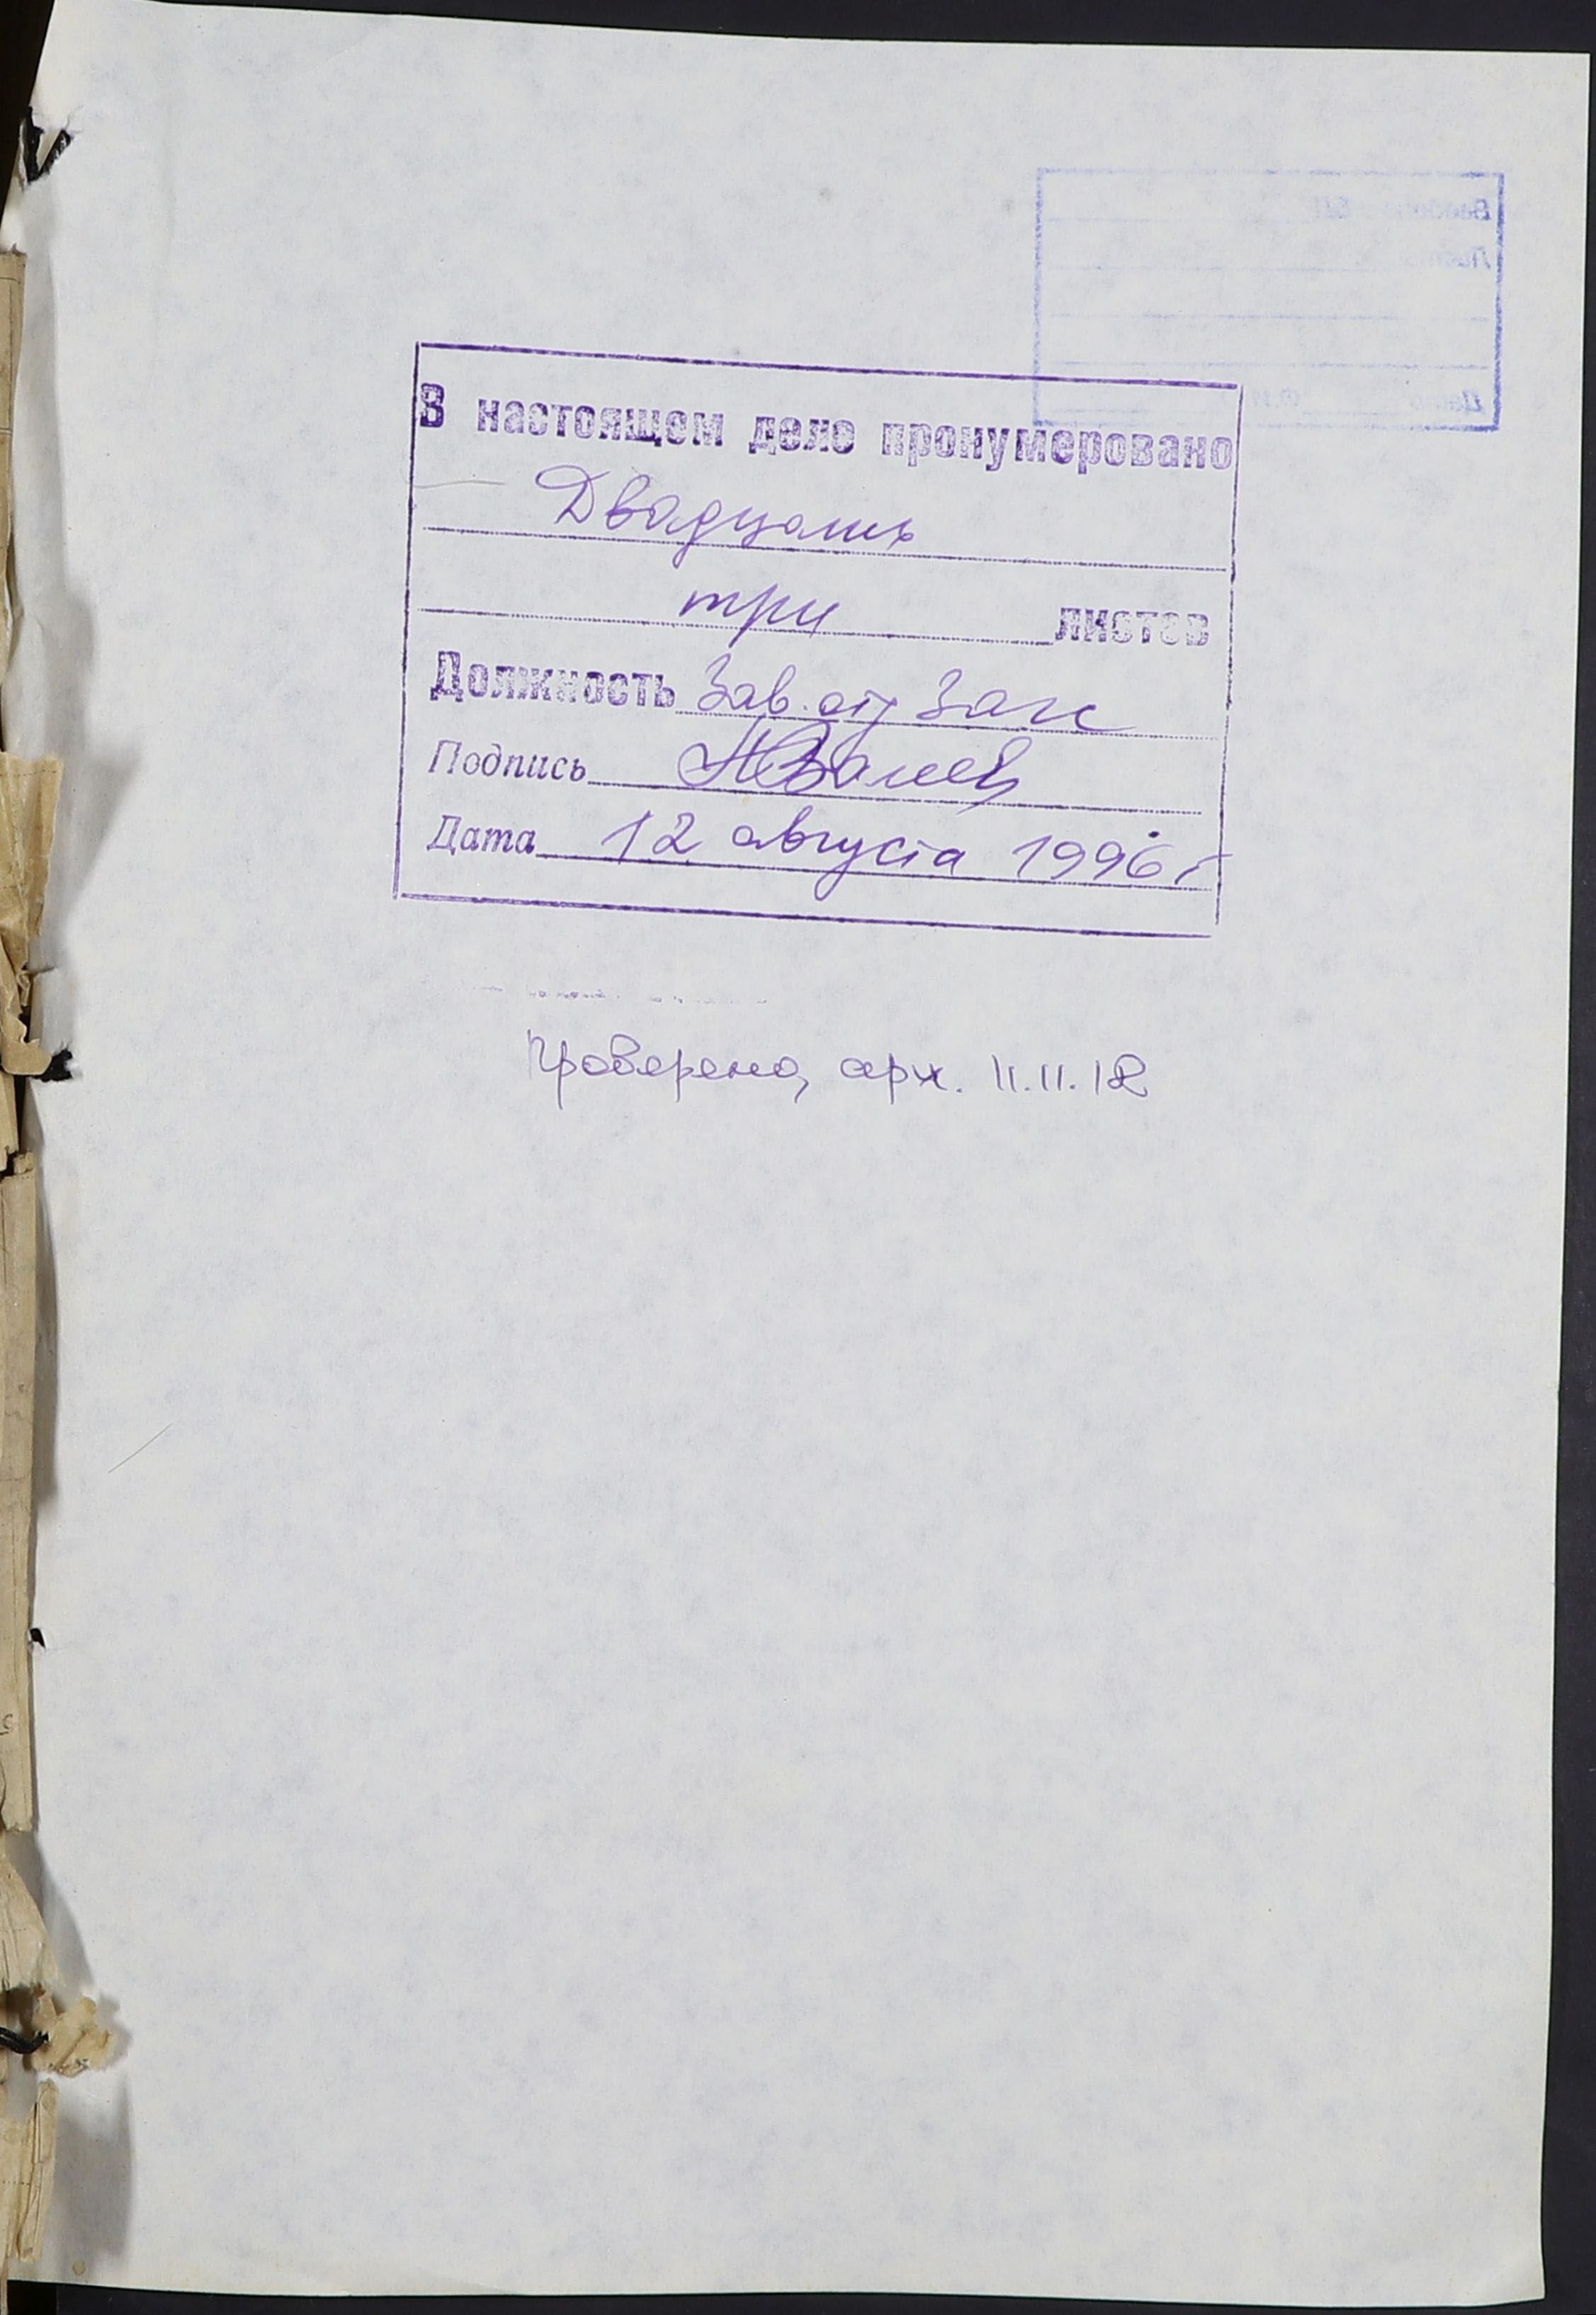 В настоящем деле пронумеровано
Двадцать
три листов
Должность Зав. отд
Подпись
Дата 12 августа 1996 г
Проверено, арх. 11.11.12